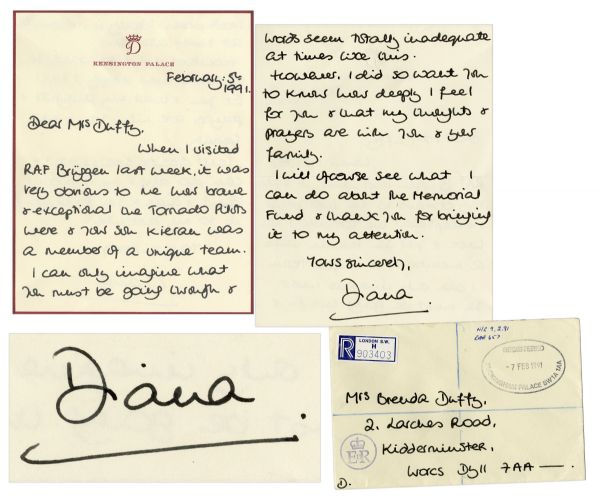 D
KENSINGTON PALACE
February. 5th
1991.
Dear Mrs Duffy.
When I visited
RAF Brüggen last week, it was
very obvious to me how brave
& exceptional the Tornado Pilots
were & your son Kieran was
a member of a unique team.
I can only imagine what
you must be going through &
words seem totally inadequate
at times like this.
However, I did so want you
to know how deeply I feel
for you & that my thoughts &
prayers are with you & your
family.
I will of course see what I
can do about the Memorial
Fund & thank you for bringing
it to my attention.
Yours sincerely,
Diana
Diana
R
LONDON S.W.
H
903403
REGISTERED
-7 FEB 1991
BUCKINGHAM PALACE SW1A 1AA
Mrs Brenda Duffy,
2. Larches Road,
Kidderminster,
Worcs Dy11 7AA
EiiR
D.